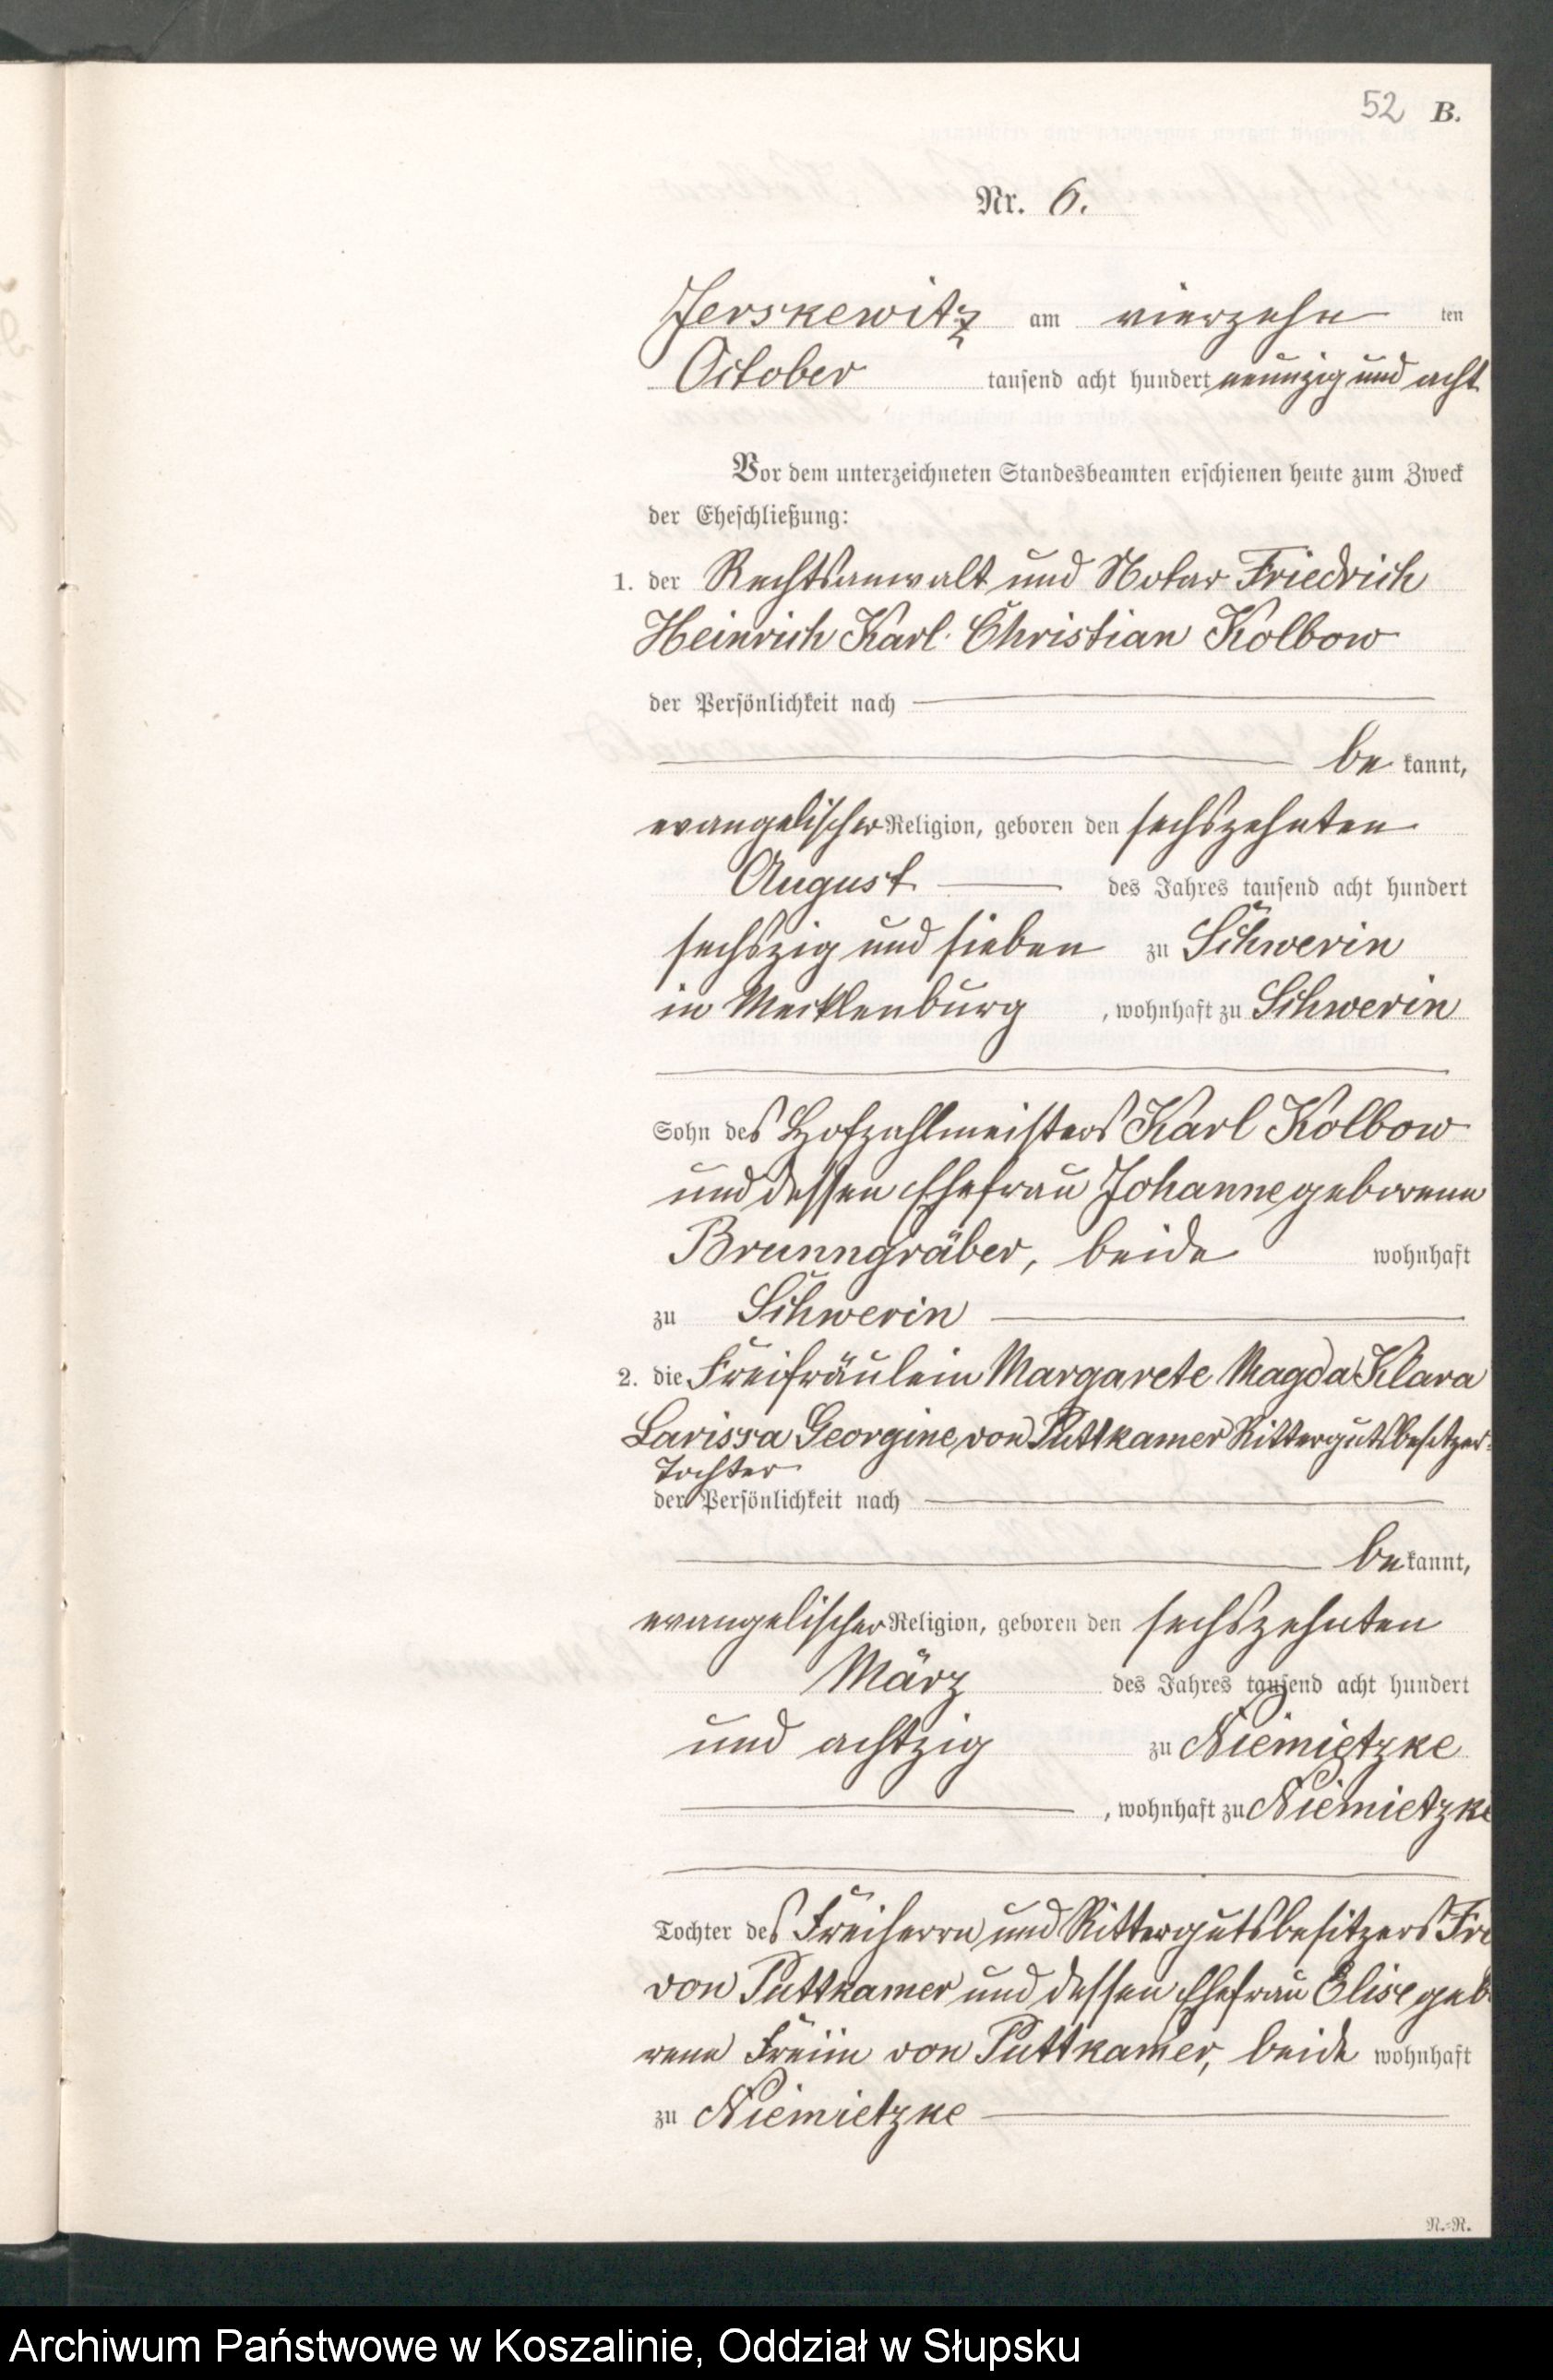 52 B.
Nr. 6.
Jerskewitz am vierzehn ten
October tausend acht hundert neunzig und acht
Vor dem unterzeichneten Standesbeamten erschienen heute zum Zweck
der Eheschließung:
1. der Rechtsanwalt und Notar Friedrich
Heinrich Karl Christian Kolbow
der Persönlichkeit nach
be kannt,
evangelischer Religion, geboren den sechszehnten
August des Jahres tausend acht hundert
sechszig und sieben zu Schwerin
in Mecklenburg , wohnhaft zu Schwerin
Sohn des Hofzahlmeisters Karl Kolbow
und dessen Ehefrau Johanne geborenen
Brunngräber, beide wohnhaft
zu Schwerin
2. die Freifräulein Margarete Magda Klara
Larissa Georgine von Puttkamer Rittergutsbesitzer-
Tochter
der Persönlichkeit nach
be kannt,
evangelischer Religion, geboren den sechszehnten
März des Jahres tausend acht hundert
und achtzig zu Niemietzke
, wohnhaft zu Niemietzke
Tochter des Freiherrn und Rittergutsbesitzers Fr
von Puttkamer und dessen Ehefrau Elise gebo
rene Freiin von Puttkamer, beide wohnhaft
zu Niemietzke
N.-R.
Archiwum Państwowe w Koszalinie, Oddział w Słupsku